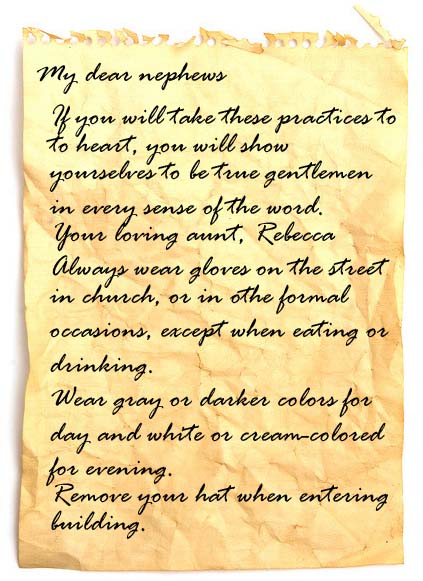 My dear nephews
If you will take these practices to
to heart, you will show
yourselves to be true gentlemen
in every sense of the word.
Your loving aunt, Rebecca
Always wear gloves on the street
in church, or in othe formal
occasions, except when eating or
drinking.
Wear gray or darker colors for
day and white or cream-colored
for evening.
Remove your hat when entering
building.